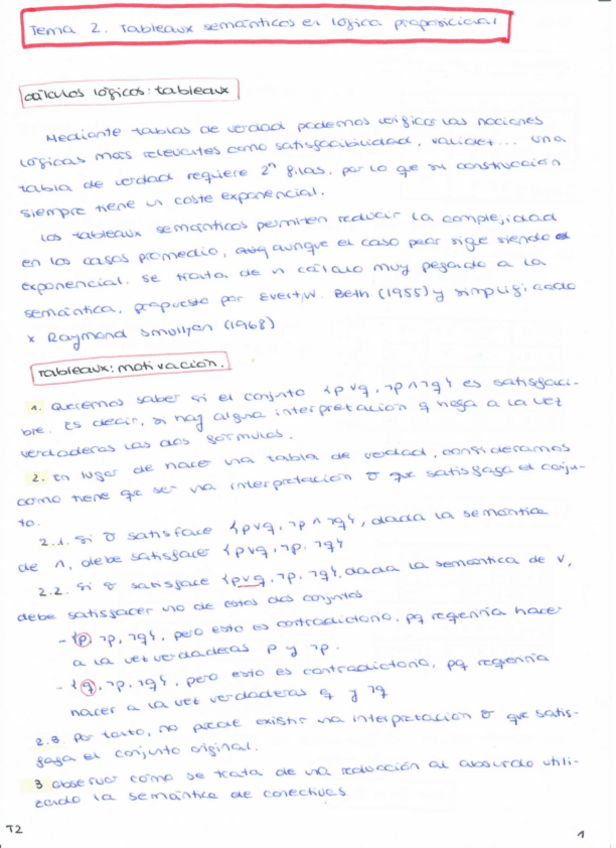 Tema 2. Tableaux semánticos en lógica proposicional
Cálculos lógicos: tableaux
Mediante tablas de verdad podemos verificar las nociones
lógicas más relevantes como satisfacibilidad, validez... Una
tabla de verdad requiere 2ⁿ filas, por lo qe su construcción
siempre tiene un coste exponencial.
Los tableaux semánticos permiten reducir la complejidad
en los casos promedio, aunque el caso peor sigue siendo
exponencial. Se trata de un cálculo muy pegado a la
semántica, propuesto por Evert W. Beth (1955) y simplificado
x Raymond Smullyan (1968)
Tableaux: motivación.
1. Queremos saber si el conjunto {p∨q, ¬p∧¬q} es satisfaci-
ble. Es decir, si hay alguna interpretación q haga a la vez
verdaderas las dos fórmulas.
2. En lugar de hacer una tabla de verdad, consideramos
como tiene que ser una interpretación σ que satisfaga el conju-
to.
2.1. Si σ satisface {p∨q, ¬p∧¬q}, dada la semántica
de ∧, debe satisfacer {p∨q, ¬p, ¬q}
2.2. Si σ satisface {p∨q, ¬p, ¬q}, dada la semántica de ∨,
debe satisfacer uno de estos dos conjuntos
- {p, ¬p, ¬q}, pero esto es contradictorio, pq requeriría hacer
a la vez verdaderas p y ¬p.
- {q, ¬p, ¬q}, pero esto es contradictorio, pq requeriría
hacer a la vez verdaderas q y ¬q
2.3. Por tanto, no puede existir una interpretación σ que satis-
faga el conjunto original.
3 observar cómo se trata de una reducción al absurdo utili-
zando la semántica de conectivas
T2
1